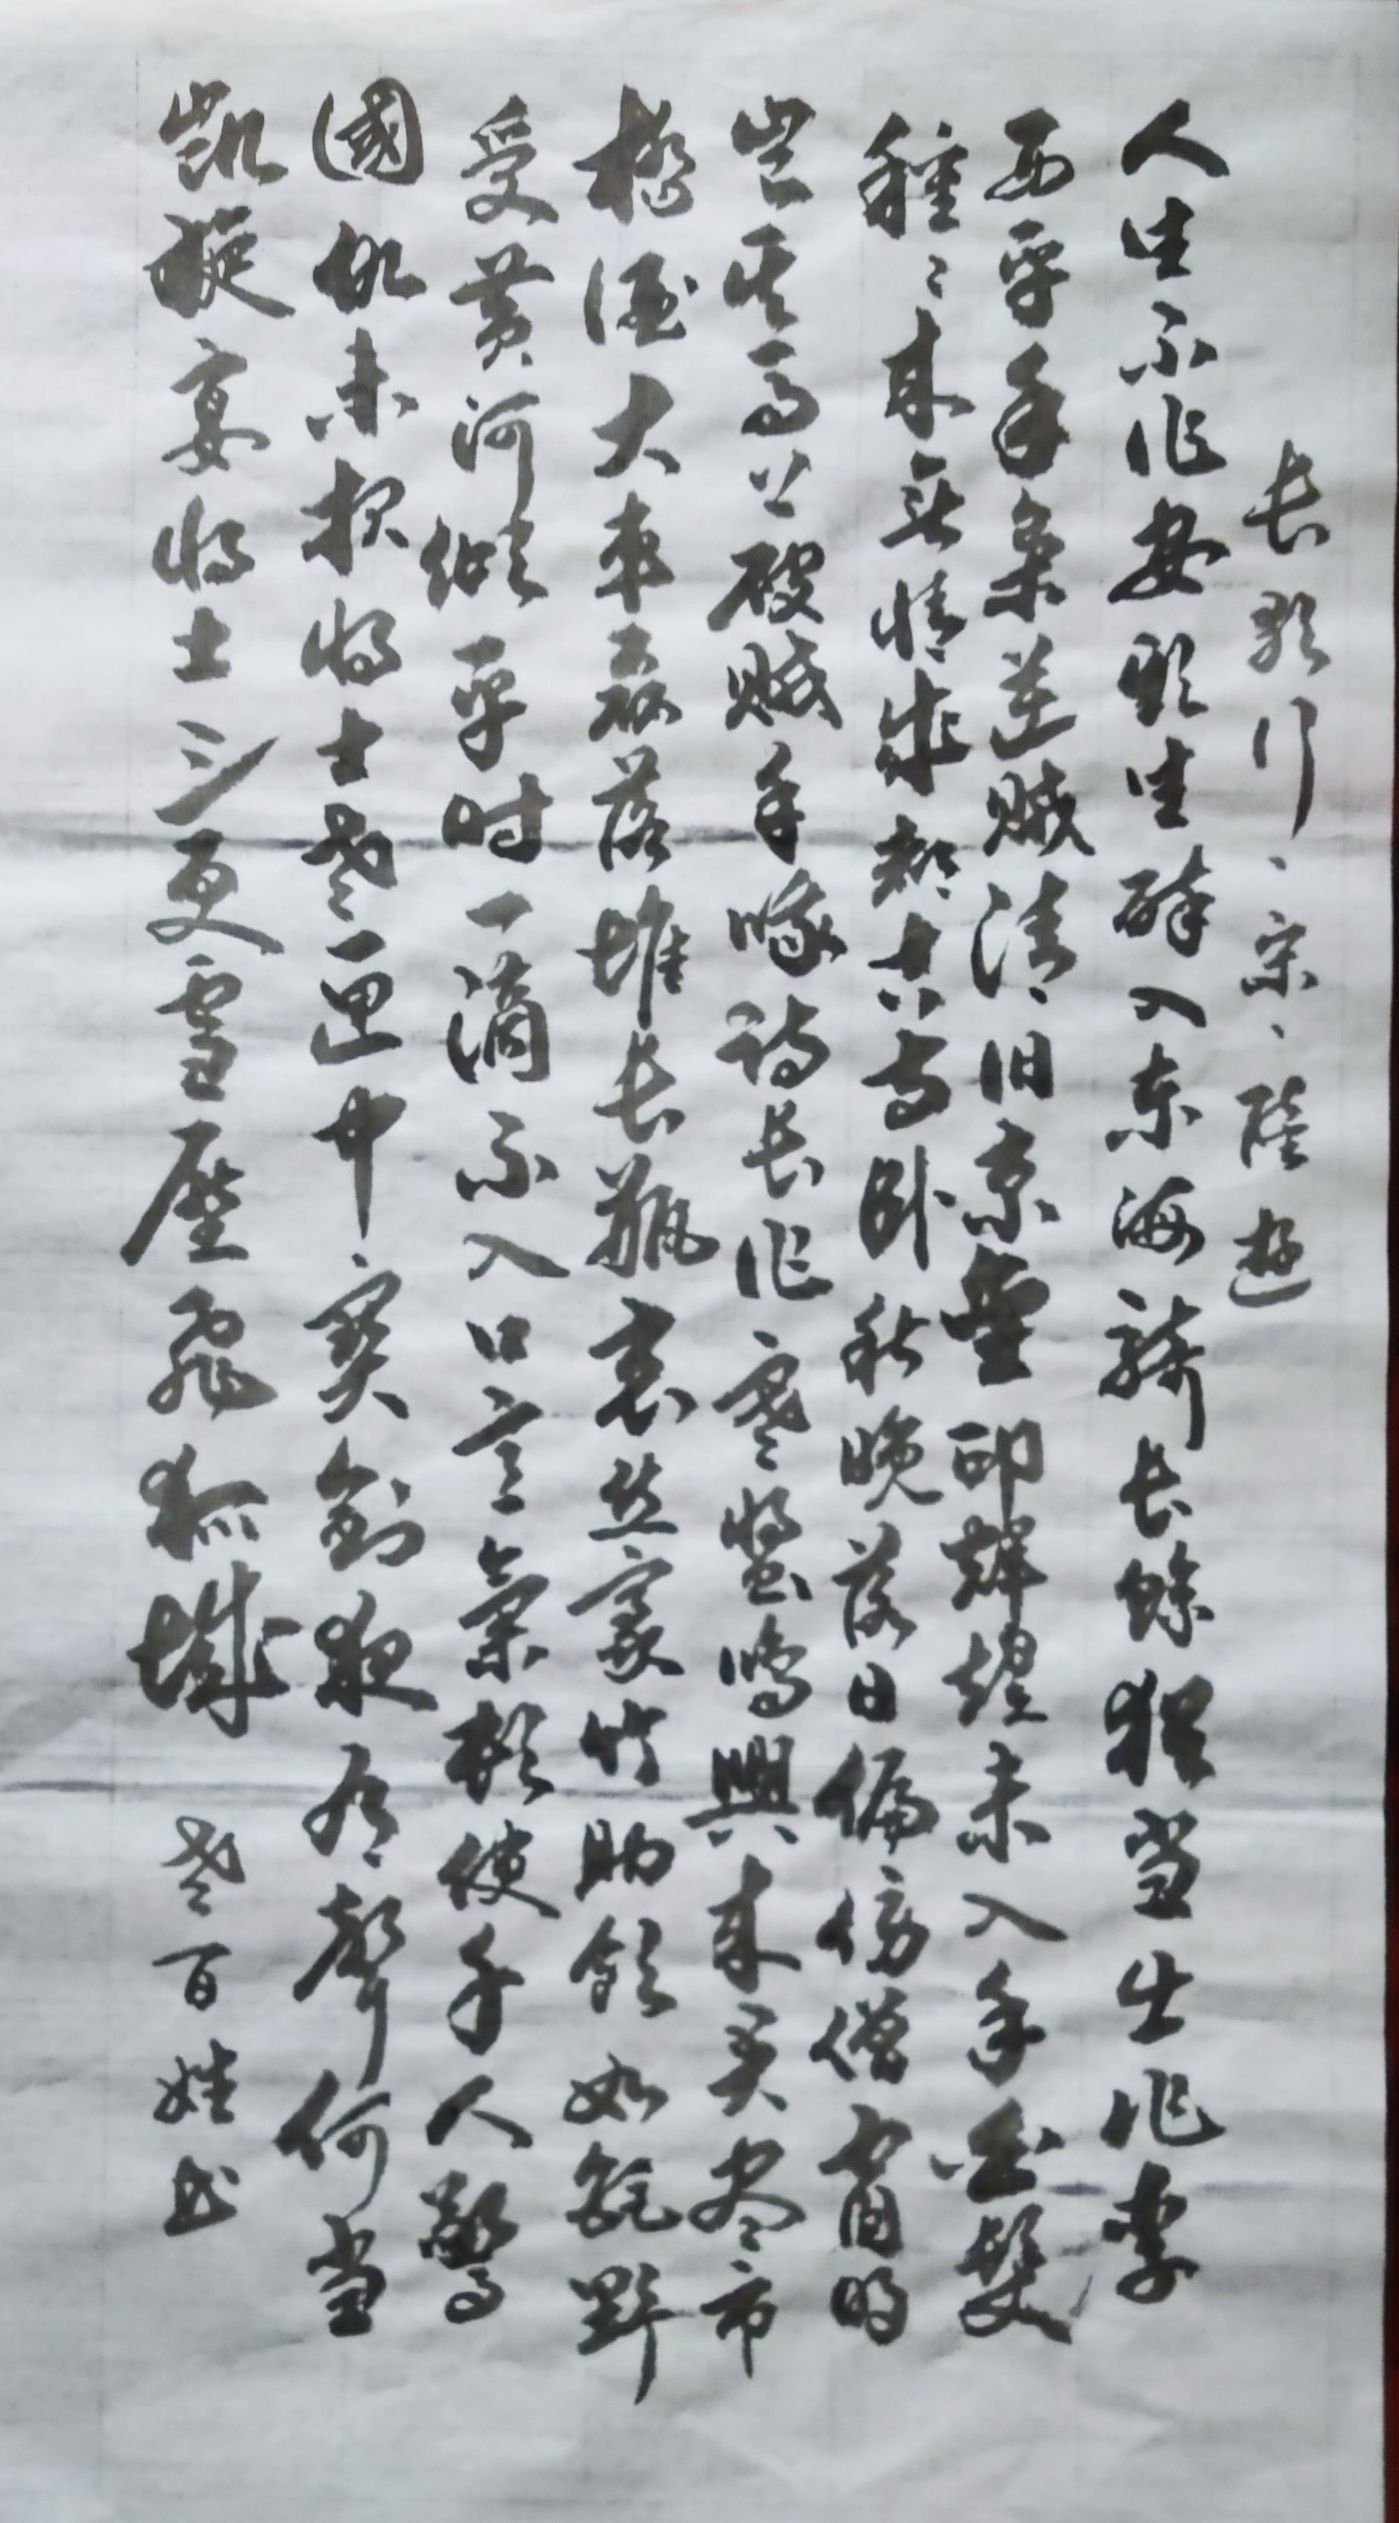 长歌行、宋、陸遊
人生不作安期生醉入东海骑长鲸犹当出作李
西平手枭逆贼清旧京金印辉煌未入手白髮
種種来无情成都古寺卧秋晚落日偏傍僧窗明
岂其马上破贼手哦诗长作寒螀鸣興来买尽市
桥酒大车磊落堆长瓶哀丝豪竹助飲如鉅野
受黄河倾平时一滴不入口意氣顿使千人驚
國仇未报将士老匣中寳劍夜有聲何當
凯旋宴将士三更雪壓飛狐城
老百姓书